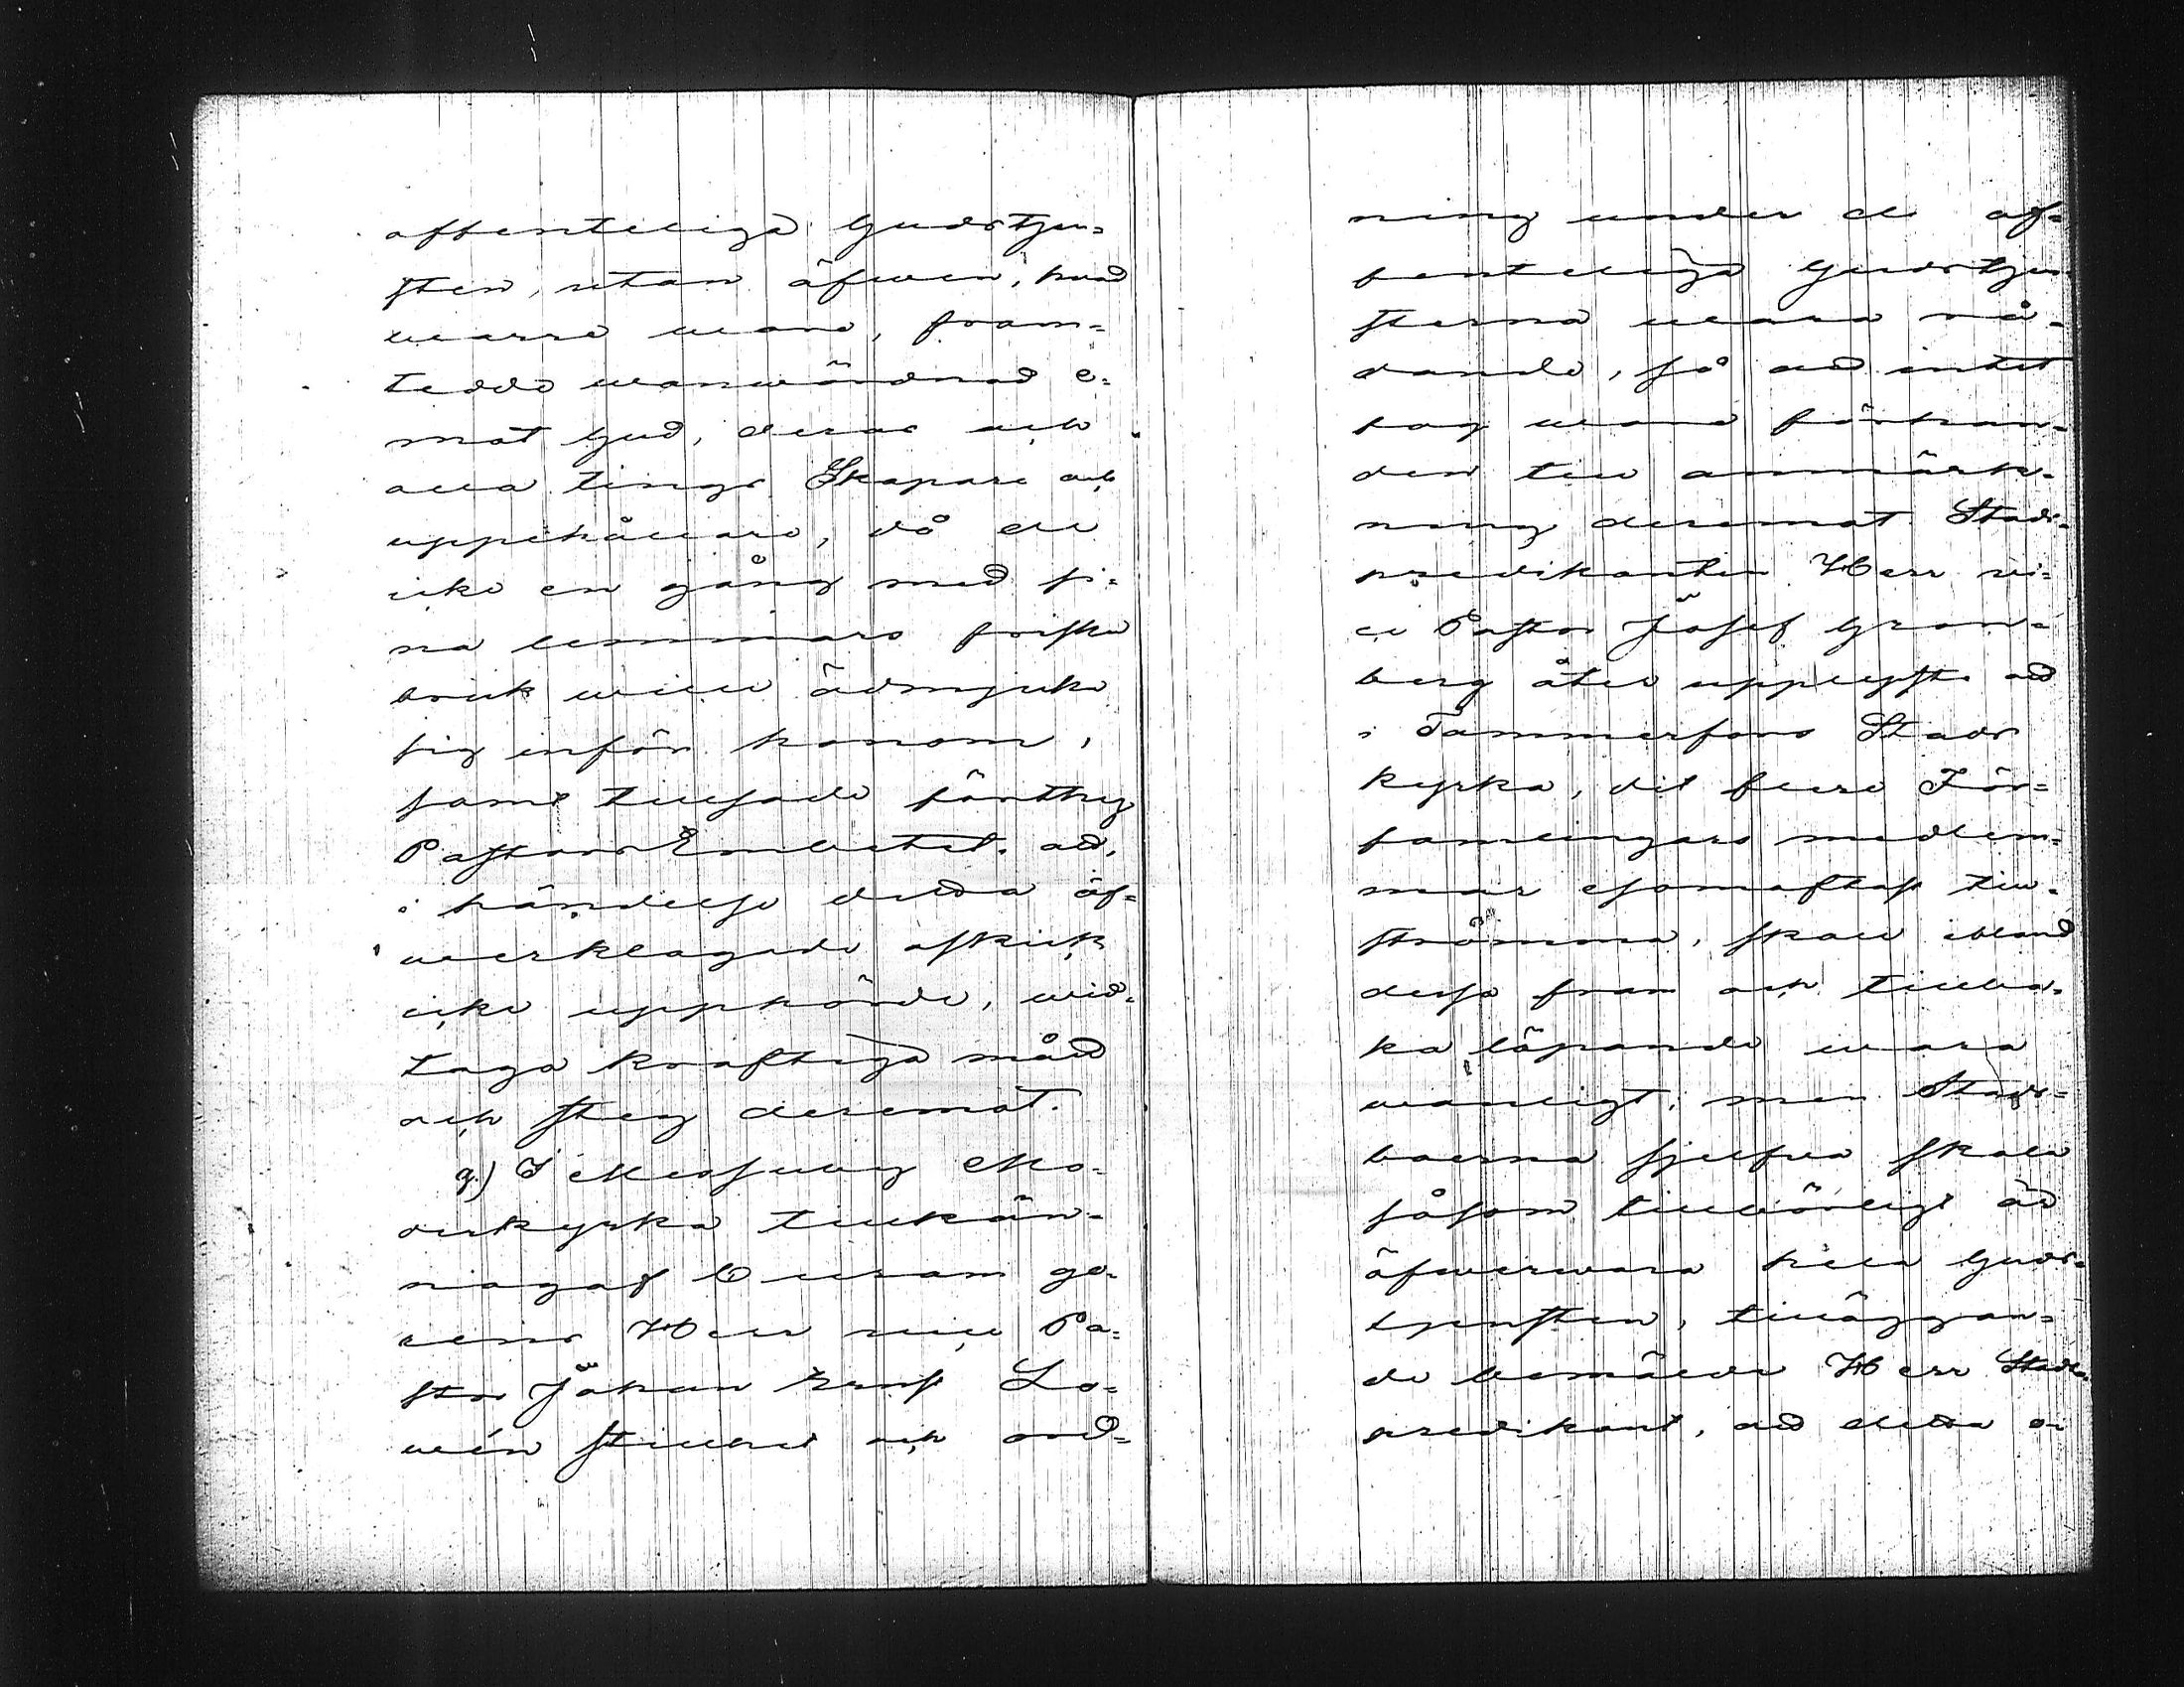 offenteliga Gudstjen-
sten, utan äfwen, hwad
werre ware, fram-
tedde wanwördnad e-
mot Gud, deras och
alla tings Skapare och
uppehållare, då de
icke en gång med si-
na lemmars friska
bruk wille ödmjuka
sig inför honom,
samt tillsade före
PastorsEmbetet, at,
i händelse detta öf-
werklagade oskick
icke upphörde, wid-
taga kraftiga mått
och steg deremot.
g.) I Messuby Mo-
derkyrka tillkän-
nagaf Dess ärom go-
dens Herr vice Pa-
stor Johan Ernst Lo-
wén stillhet och ord-
ning under de of-
fenteliga Gudstjen-
sterna wara rå-
dande, så at intet
fog ware förhan-
den till anmärk-
ning deremot. Stads-
predikanten Herr vi-
ce Pastor Josef Gran-
berg åter upplyste at
i Tammerfors Stads
kyrka, dit flere För-
samlingars medlem-
mar esomoftast till-
strömma, skall ibland
dessa fram och tillba-
ka löpande wara
wanligt; men Stads-
boerna sjelfwa skola
såsom tillbörligt är
öfwerwara hela Guds-
tjensten, tilläggan-
de bemälde Herr Stads-
predikant, at detta o-